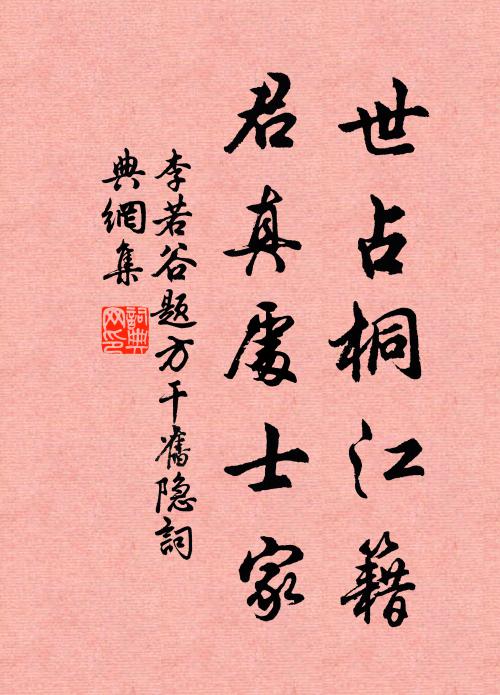 世占桐江籍
君真處士家
李若谷题方干舊隐詞
典網集
詞典
网印